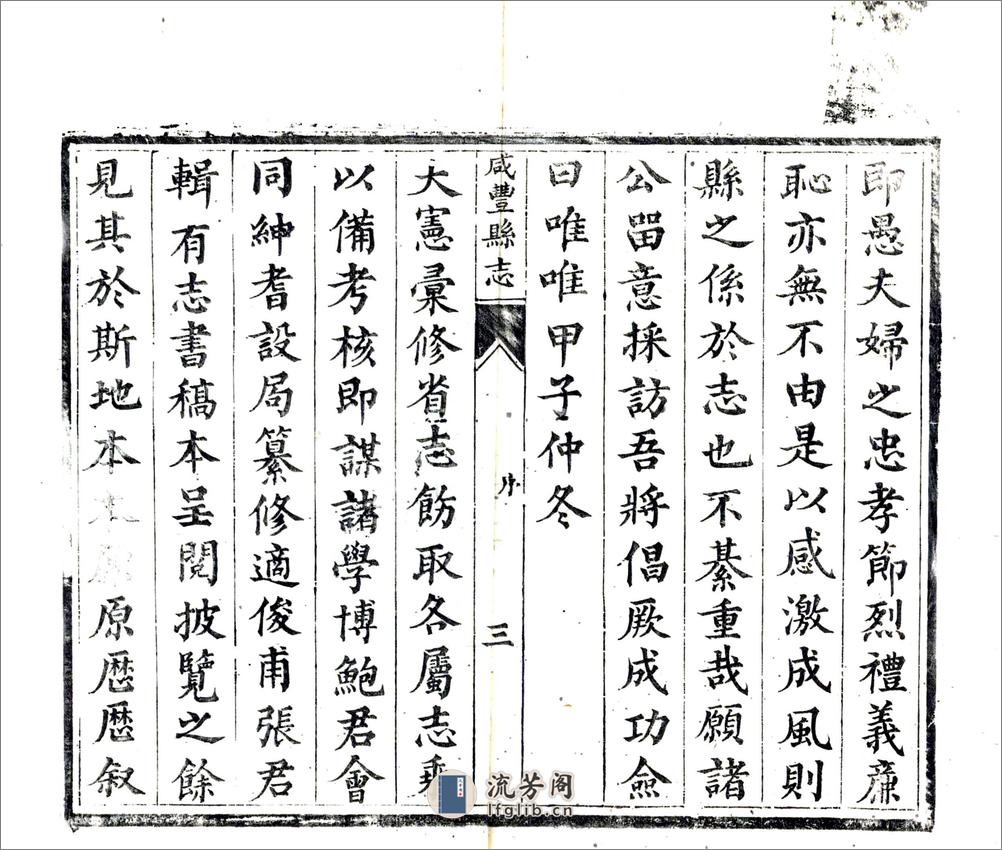 即愚夫婦之忠孝節烈禮義廉
恥亦無不由是以感激成風則
縣之係於志也不綦重哉願諸
公留意採訪吾將倡厥成功僉
曰唯唯甲子仲冬
咸豐縣志
序
三
大憲彙修省志飭取各屬志乘
以備考核即謀諸學博鮑君會
同紳耆設局纂修適俊甫張君
輯有志書稿本呈閱披覽之餘
見其於斯地本末原歷歷叙
流芳阁
lfglib.cn